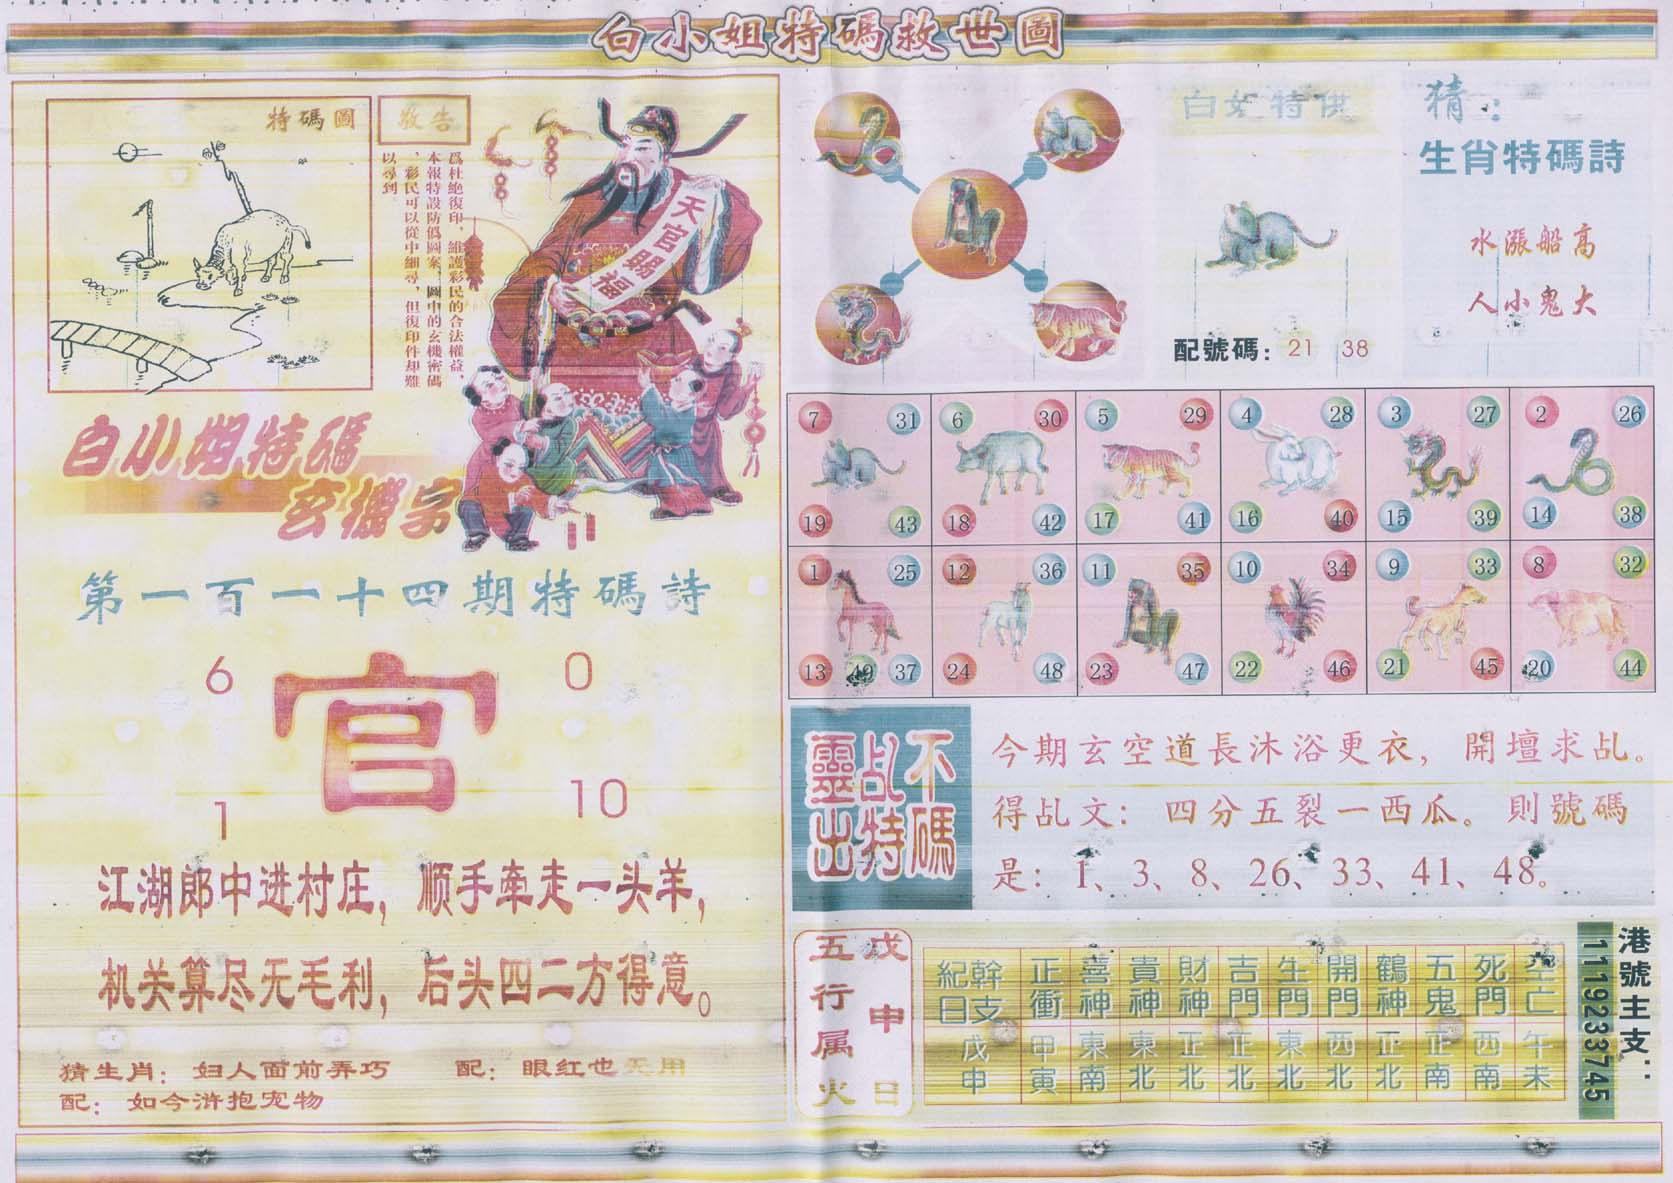 白小姐特碼救世圖
特碼圖
敬告
爲杜絶復印，維護彩民的合法權益，
本報特設防僞圖案，圖中的玄機密碼
，彩民可以從中細尋，但復印件却難
以尋到。
天官賜福
白小姐特碼
玄機字
第一百一十四期特碼詩
6 0
官
1 10
江湖郎中进村庄，顺手牵走一头羊，
机关算尽无毛利，后头四二方得意。
猜生肖：妇人面前弄巧 配：眼红也无用
配：如今浒抱宠物
白姐特供
配號碼：21 38
猜：
生肖特碼詩
水漲船高
人小鬼大
7 31 6 30 5 29 4 28 3 27 2 26
19 43 18 42 17 41 16 40 15 39 14 38
1 25 12 36 11 35 10 34 9 33 8 32
13 49 37 24 48 23 47 22 46 21 45 20 44
不碼
乩特
靈出
今期玄空道長沐浴更衣，開壇求乩。
得乩文：四分五裂一西瓜。則號碼
是：1、3、8、26、33、41、48。
戊申日
五行属火
紀日 幹支 正衝 喜神 貴神 財神 吉門 生門 開門 鶴神 五鬼 死門 空亡
戊申 甲寅 東南 東北 正北 正北 東北 西北 正北 正南 西南 午未
港號主支：
1119233745